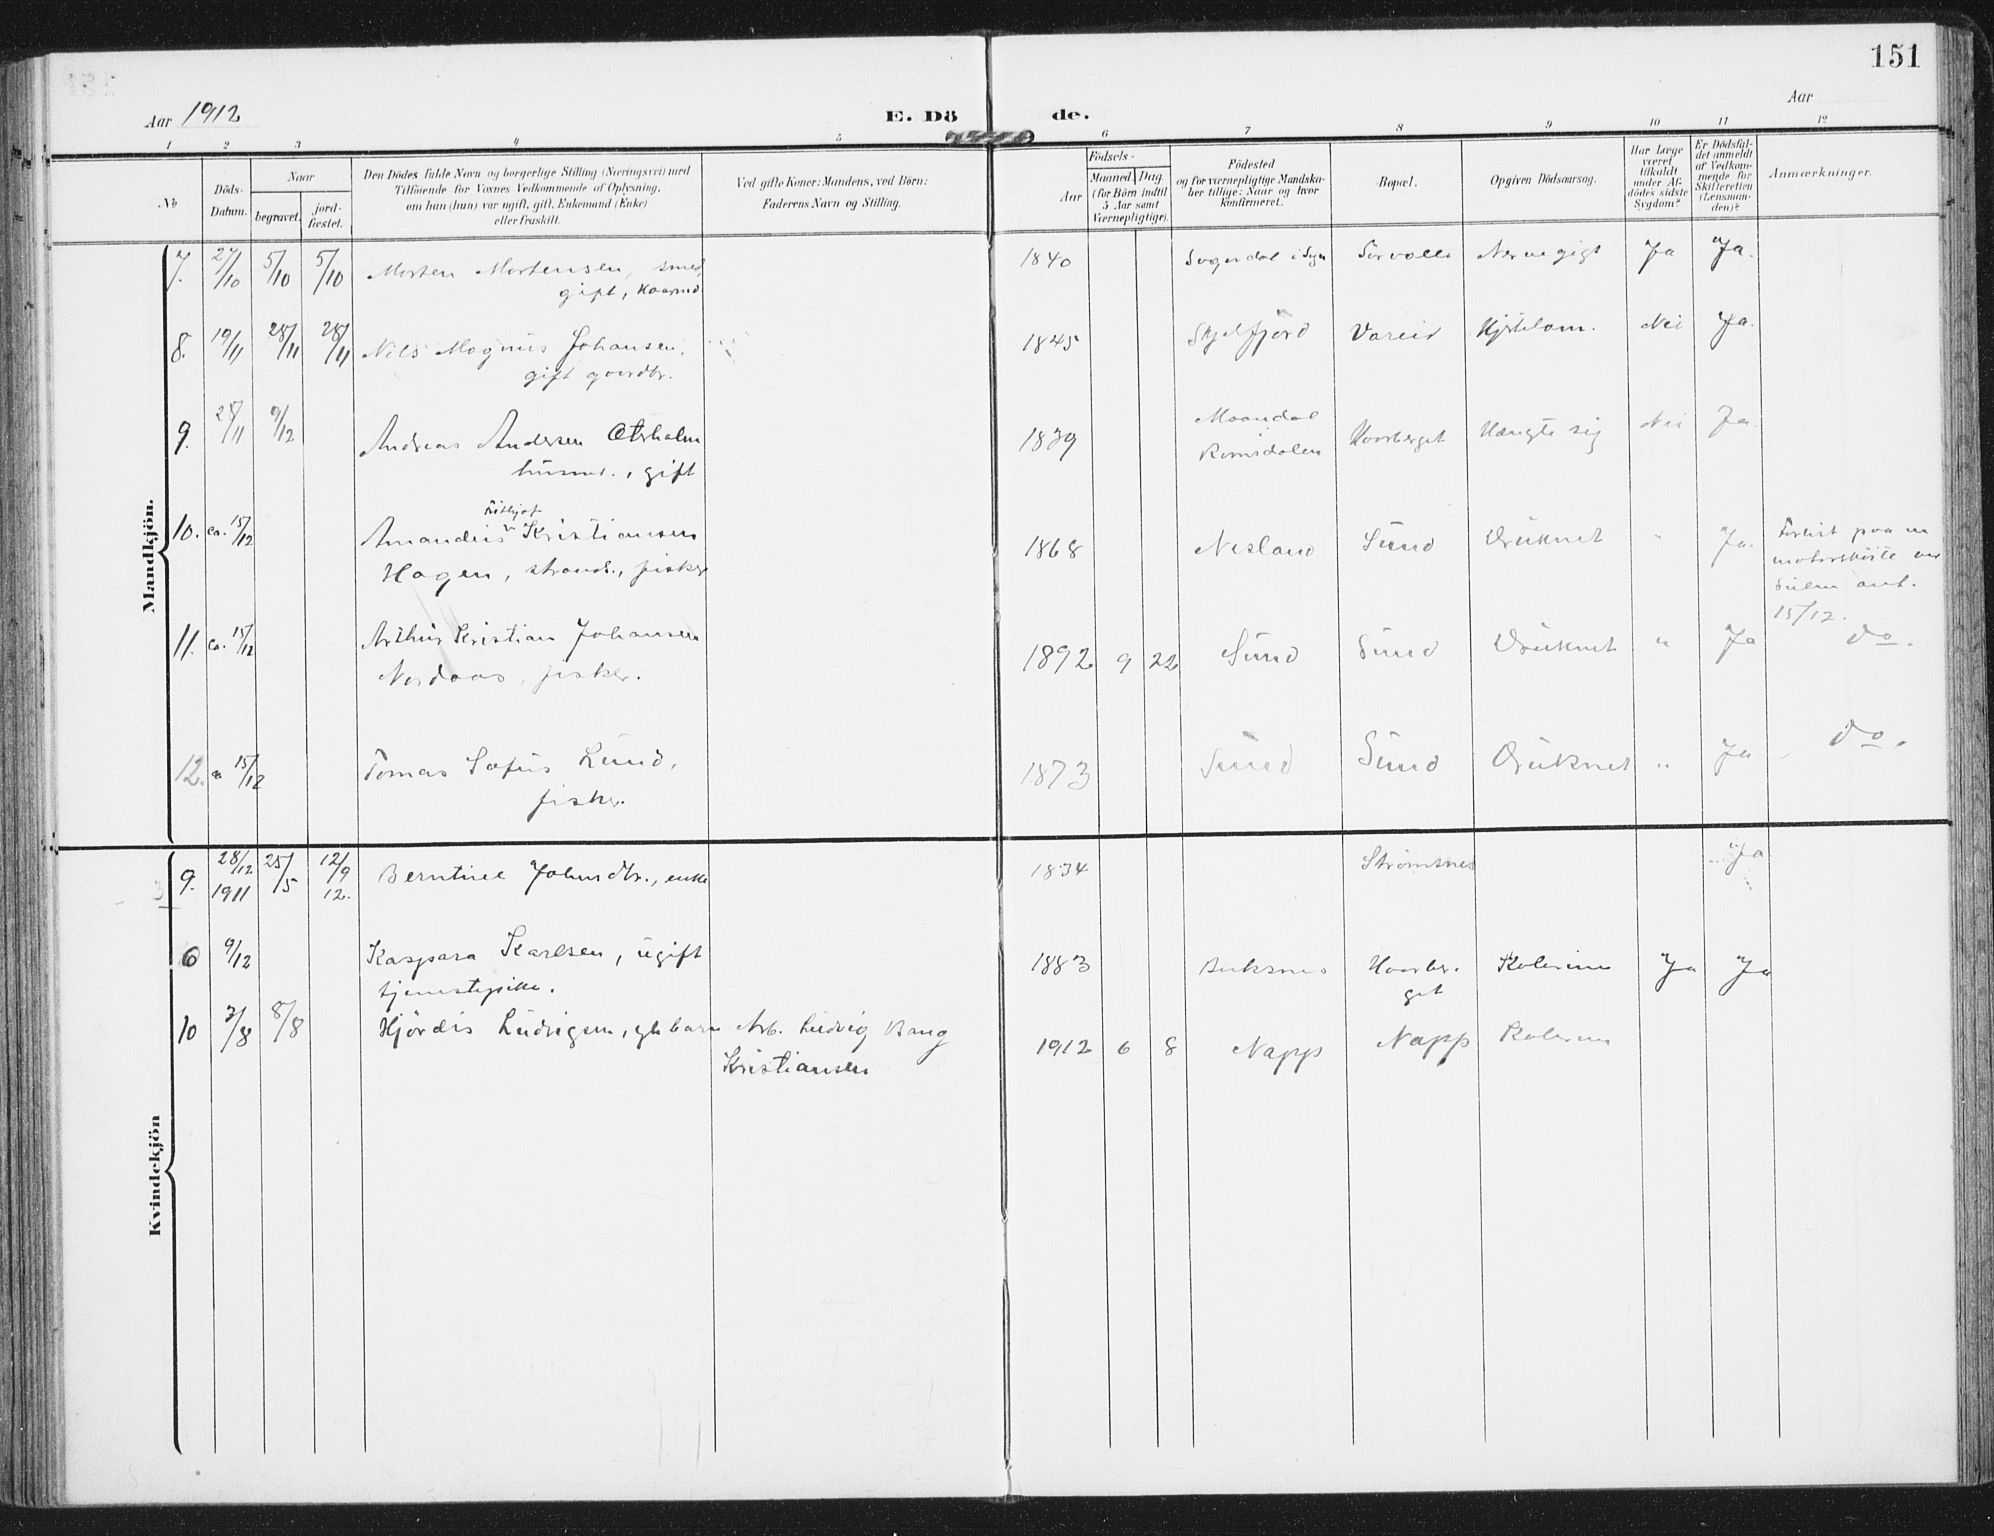 151
Aar 1912
E. Dö
de.
Aar
1 2 3 4 5 6 7 8 9 10 11 12
No
Döds-
Datum.
Naar
begravet.
jord-
fæstet.
Den Dödes fulde Navn og borgerlige Stilling (Næringsvei) med
Tilföiende for Voxnes Vedkommende af Oplysning,
om han (hun) var ugift, gift, Enkemand (Enke)
eller fraskilt.
Ved gifte Koner: Mandens, ved Börn:
Faderens Navn og Stilling.
Födsels-
Aar
Maaned. Dag.
(for Börn indtil
5 Aar samt
Værnepligtige).
Födested
og for værnepligtige Mandska-
ber tillige: Naar og hvor
konfirmeret.
Bopæl.
Opgiven Dödsaarsag.
Har Læge
været
tilkaldt
under Af-
dödes sidste
Sygdom?
Er Dödsfal-
det anmeldt
af Vedkom-
mende for
Skifteretten
(Lensman-
den)?
Anmærkninger.
Mandkjön.
7. 27/10 5/10 5/10 Morten Mortensen, smed, 1840 Sogndal i Sogn Nervegigt Ja Ja.
gift,
8. 19/11 28/11 28/11 Nils Magnus Johansen, 1845 Skjelfjord Vareid Nei Ja.
gift gaardbr.
9. 28/11 9/12 Andreas Andersen 1839 Maandal
Romsdalen Haarberget Hængte sig Nei Ja.
husmd., gift
10. ca. 15/12 Frithjof
Amandus Kristiansen 1868 Nesland Sund Druknet " Ja. Forlist paa en
Hagen, strands., fisker motorskøite
ant.
15/12.
11. ca. 15/12 Arthur Kristian Johansen 1892 9 22 Sund Sund Druknet " Ja do.
Nordaas, fisker.
12. ca 15/12 Tomas Sofus Lund, 1873 Sund Sund Druknet " Ja do.
fisker.
Kvindekjön
9. 28/12
1911 25/5 12/9
12. Berntine Johnsdtr., enke 1834 Strømsnes Ja
6 9/12 Kaspara Karlsen, ugift 1883 Buksnes Haarber-
get Kolerine Ja Ja
tjenestepike.
10 3/8 8/8 Hjördis Ludvigsen, barn Arb. Ludvig Bang 1912 6 8 Napp Napp Kolerine
Kristiansen